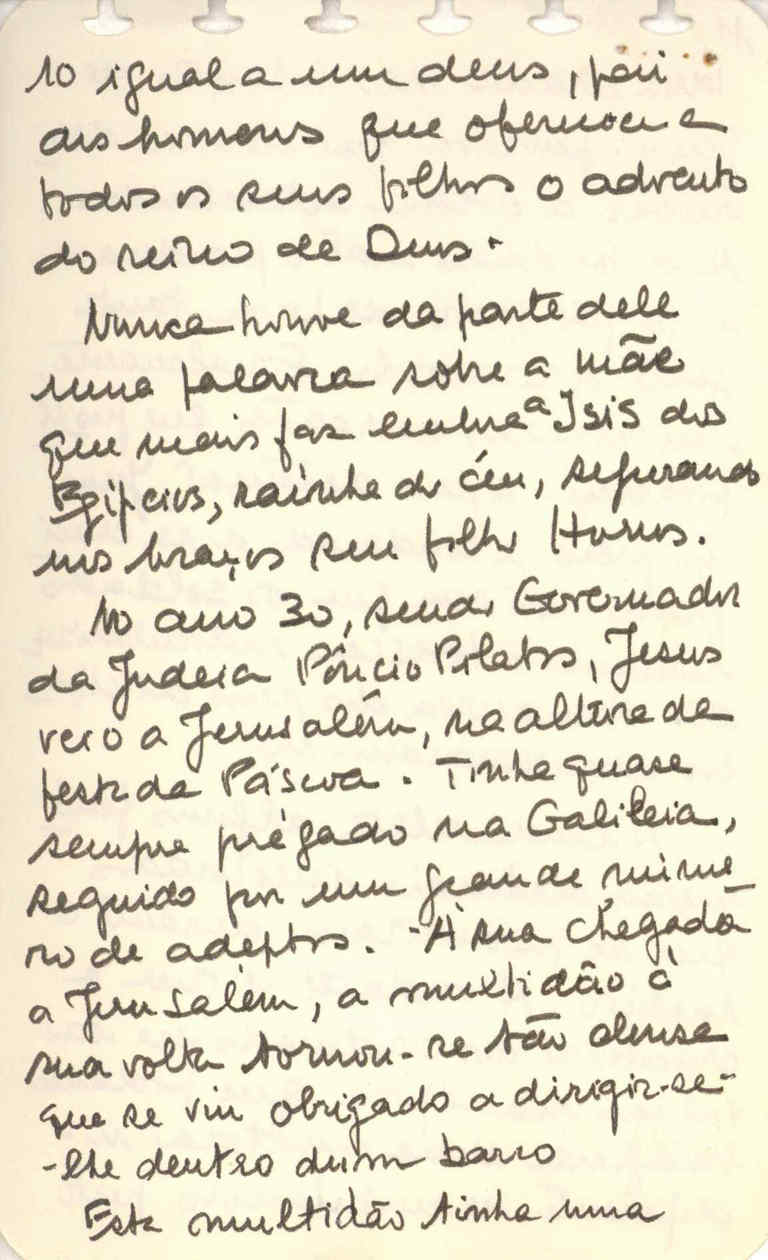 10 igual a um deus, pai
dos homens que ofereceu a
todos os seus filhos o advento
do reino de Deus.
Nunca houve da parte dele
uma palavra sobre a mãe
que mais faz lembrar a Isis dos
Egípcios, rainha do céu, segurando
nos braços seu filho Horus.
No ano 30, sendo Governador
da Judeia Pôncio Pilatos, Jesus
veio a Jerusalém, na altura da
festa da Páscoa. Tinha quase
sempre prégado na Galileia,
seguido por um grande núme-
ro de adeptos. À sua chegada
a Jerusalém, a multidão à
sua volta tornou-se tão densa
que se viu obrigado a dirigir-se-
-lhe dentro dum barco
Esta multidão tinha uma